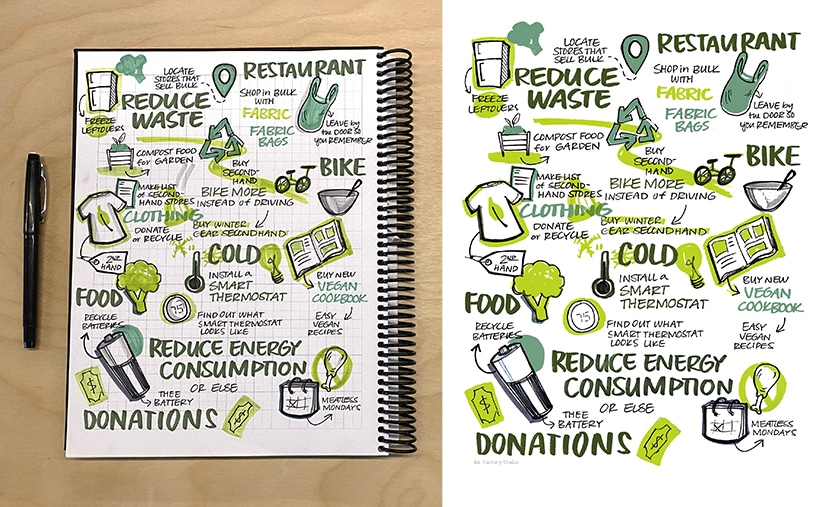 LOCATE
STORES THAT
SELL BULK
RESTAURANT
REDUCE
WASTE
FREEZE
LEFTOVERS
SHOP in BULK
WITH
FABRIC
FABRIC
BAGS
LEAVE by
the DOOR SO
YOU REMEMBER
COMPOST FOOD
for GARDEN
BUY
SECOND-
HAND
BIKE
MAKE LIST
of SECOND-
HAND STORES
BIKE MORE
INSTEAD OF DRIVING
CLOTHING
DONATE
or RECYCLE
BUY WINTER
GEAR SECONDHAND
2ND
HAND
COLD
INSTALL a
SMART
THERMOSTAT
BUY NEW
VEGAN
COOKBOOK
FOOD
75
FIND OUT WHAT
SMART THERMOSTAT
LOOKS LIKE
EASY
VEGAN
RECIPES
RECYCLE
BATTERIES
REDUCE ENERGY
CONSUMPTION
OR ELSE
$
THEE
BATTERY
MEATLESS
MONDAYS
DONATIONS
$
LOCATE
STORES THAT
SELL BULK
RESTAURANT
REDUCE
WASTE
FREEZE
LEFTOVERS
SHOP in BULK
WITH
FABRIC
FABRIC
BAGS
LEAVE by
the DOOR SO
YOU REMEMBER
COMPOST FOOD
for GARDEN
BUY
SECOND-
HAND
BIKE
MAKE LIST
of SECOND-
HAND STORES
BIKE MORE
INSTEAD OF DRIVING
CLOTHING
DONATE
or RECYCLE
BUY WINTER
GEAR SECONDHAND
2ND
HAND
COLD
INSTALL a
SMART
THERMOSTAT
BUY NEW
VEGAN
COOKBOOK
FOOD
75
FIND OUT WHAT
SMART THERMOSTAT
LOOKS LIKE
EASY
VEGAN
RECIPES
RECYCLE
BATTERIES
REDUCE ENERGY
CONSUMPTION
OR ELSE
$
THEE
BATTERY
MEATLESS
MONDAYS
DONATIONS
$
Ink Factory Studio